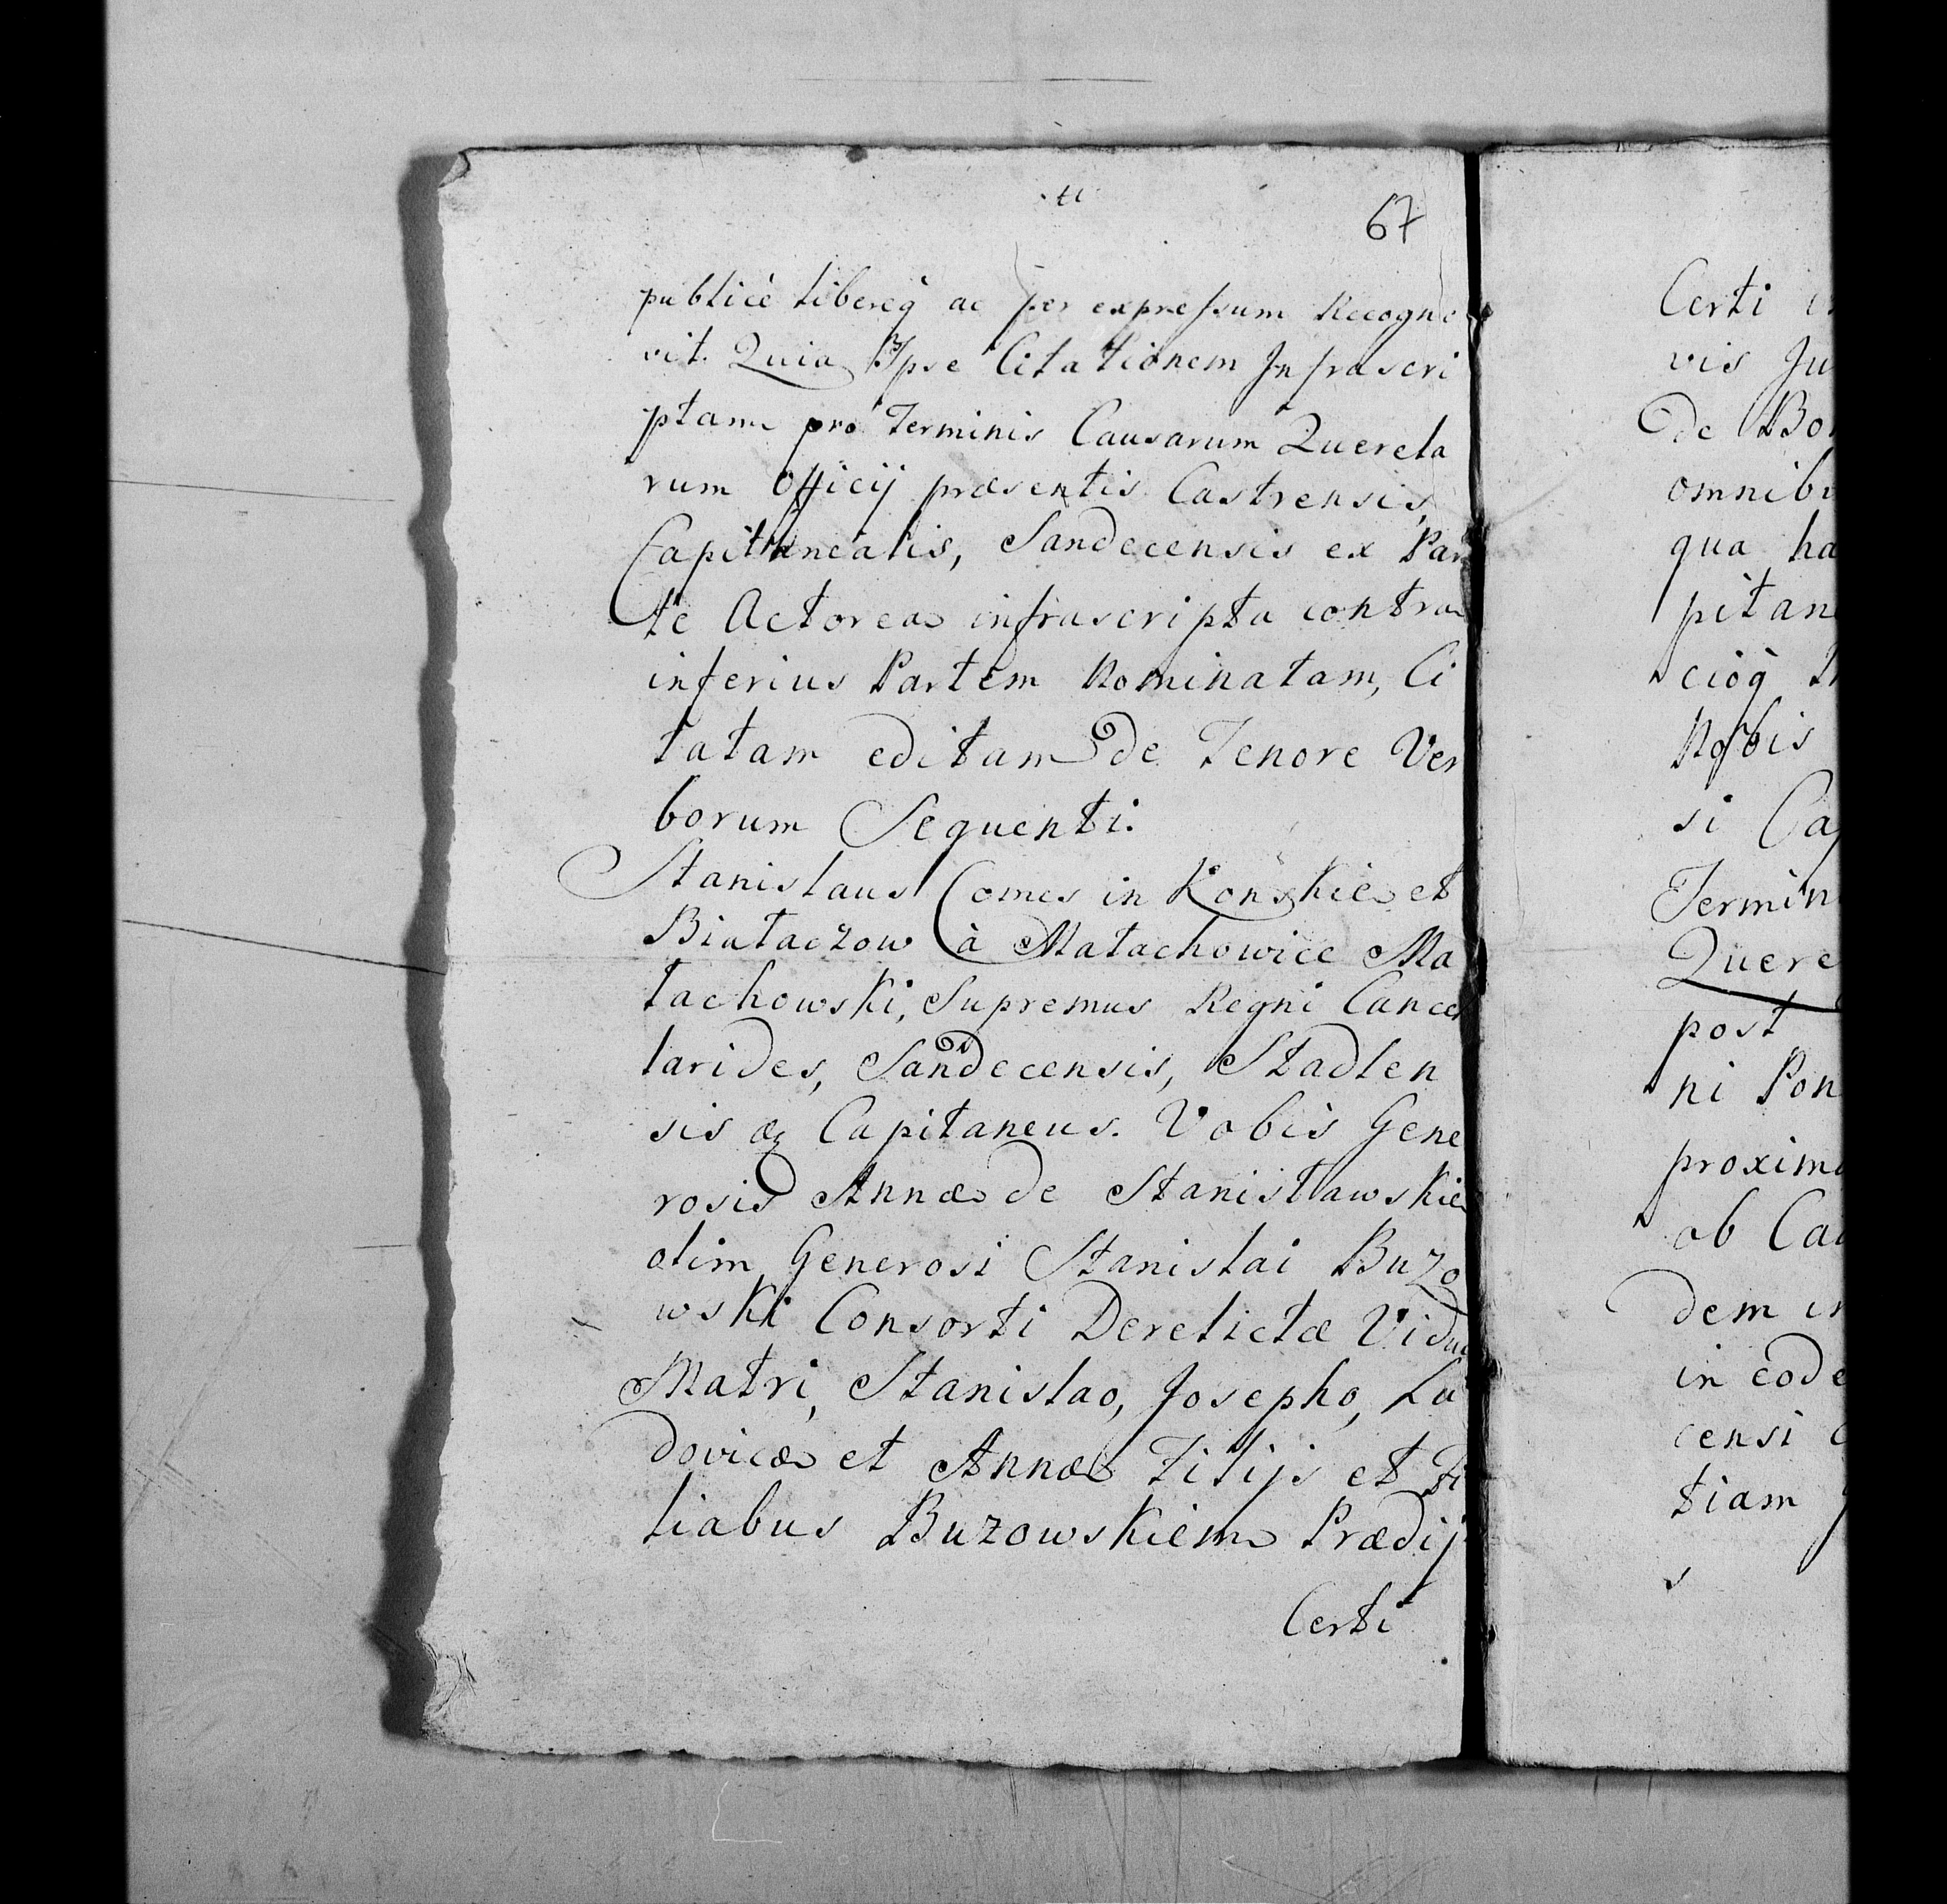 67
publicè libereq̃ ac per expressum Recogno
vit. Quia Ipse Citationem Infrascri
ptam pro Terminis Causarum Querela
rum Officij præsentis Castrensis,
Capitanealis, Sandecensis ex Par
te Actorea infrascripta contra
inferius Partem Nominatam, Ci
tatam editam de Tenore Ver
borum Sequenti.
Stanislaus Comes in Konskie et
Białaczow à Małachowice Ma
łachowski, Supremus Regni Cancel
larides, Sandecensis, Stadlen
sis &c Capitaneus. Vobis Gene
rosis Annæ de Stanisławskie
olim Generosi Stanislai Buzo
wski Consorti Derelictæ Viduæ
Matri, Stanislao, Josepho, Lu
dovicæ et Annæ Filijs et Fi
liabus Buzowskiem Prædij
Certi
Certi
vis Ju
de Bo
omnib
qua ha
pitan
cioq̃
Nobis
si Cap
Termin
Quere
post
ni Pon
proxim
ob Cau
dem in
in eode
censi
tiam